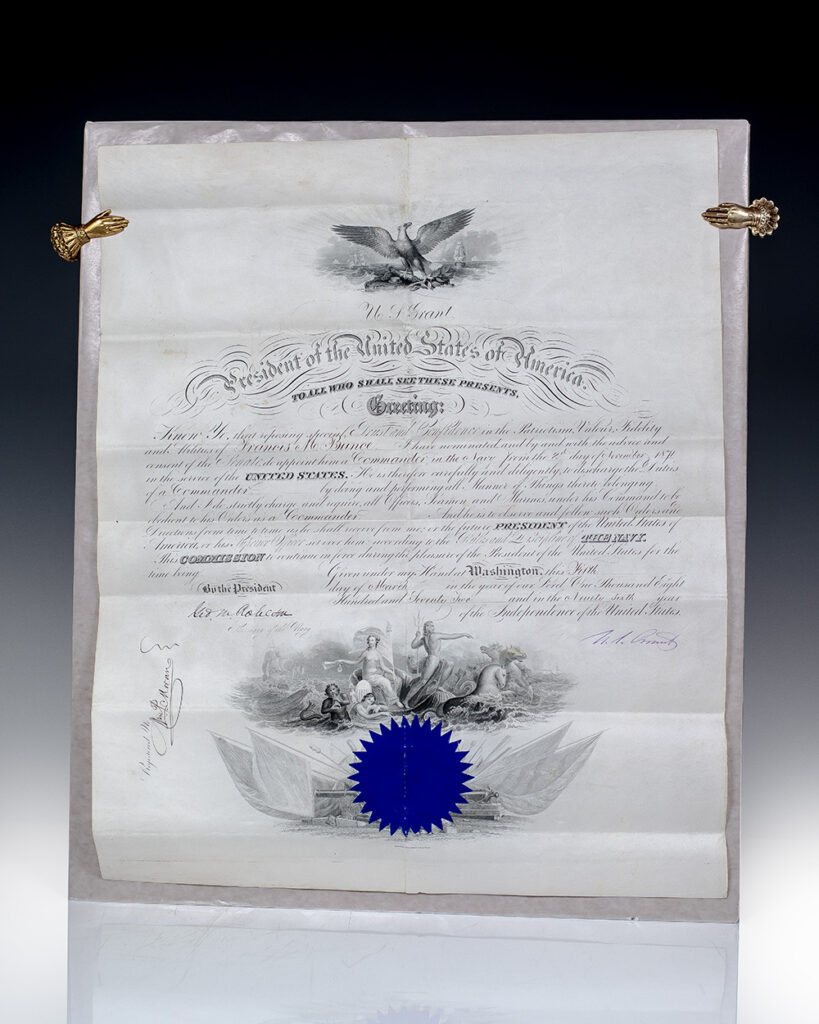 U. S. Grant
President of the United States of America.
TO ALL WHO SHALL SEE THESE PRESENTS,
Greeting:
Know Ye, that reposing special Trust and Confidence in the Patriotism, Valour, Fidelity
and Abilities of Francis M. Bunce I have nominated and by and with the advice and
consent of the Senate do appoint him a Commander in the Navy from the day of November 1871
in the service of the UNITED STATES. He is therefore carefully and diligently to discharge the Duties
of a Commander by doing and performing all Manner of Things thereto belonging.
And I do strictly charge and require all Officers, Seamen and Marines under his Command to be
obedient to his Orders as a Commander And he is to observe and follow such Orders and
Directions from time to time as he shall receive from me, or the future PRESIDENT of the United States of
America, or his Superior Officer set over him, according to the Rules and Discipline of THE NAVY.
This COMMISSION to continue in force during the pleasure of the President of the United States for the
time being.
Given under my Hand at Washington, this
day of March in the year of our Lord One Thousand Eight
Hundred and Seventy Two and in the Ninety Sixth year
of the Independence of the United States.
By the President
Geo. M. Robeson
Secretary of the Navy
U. S. Grant
Registered